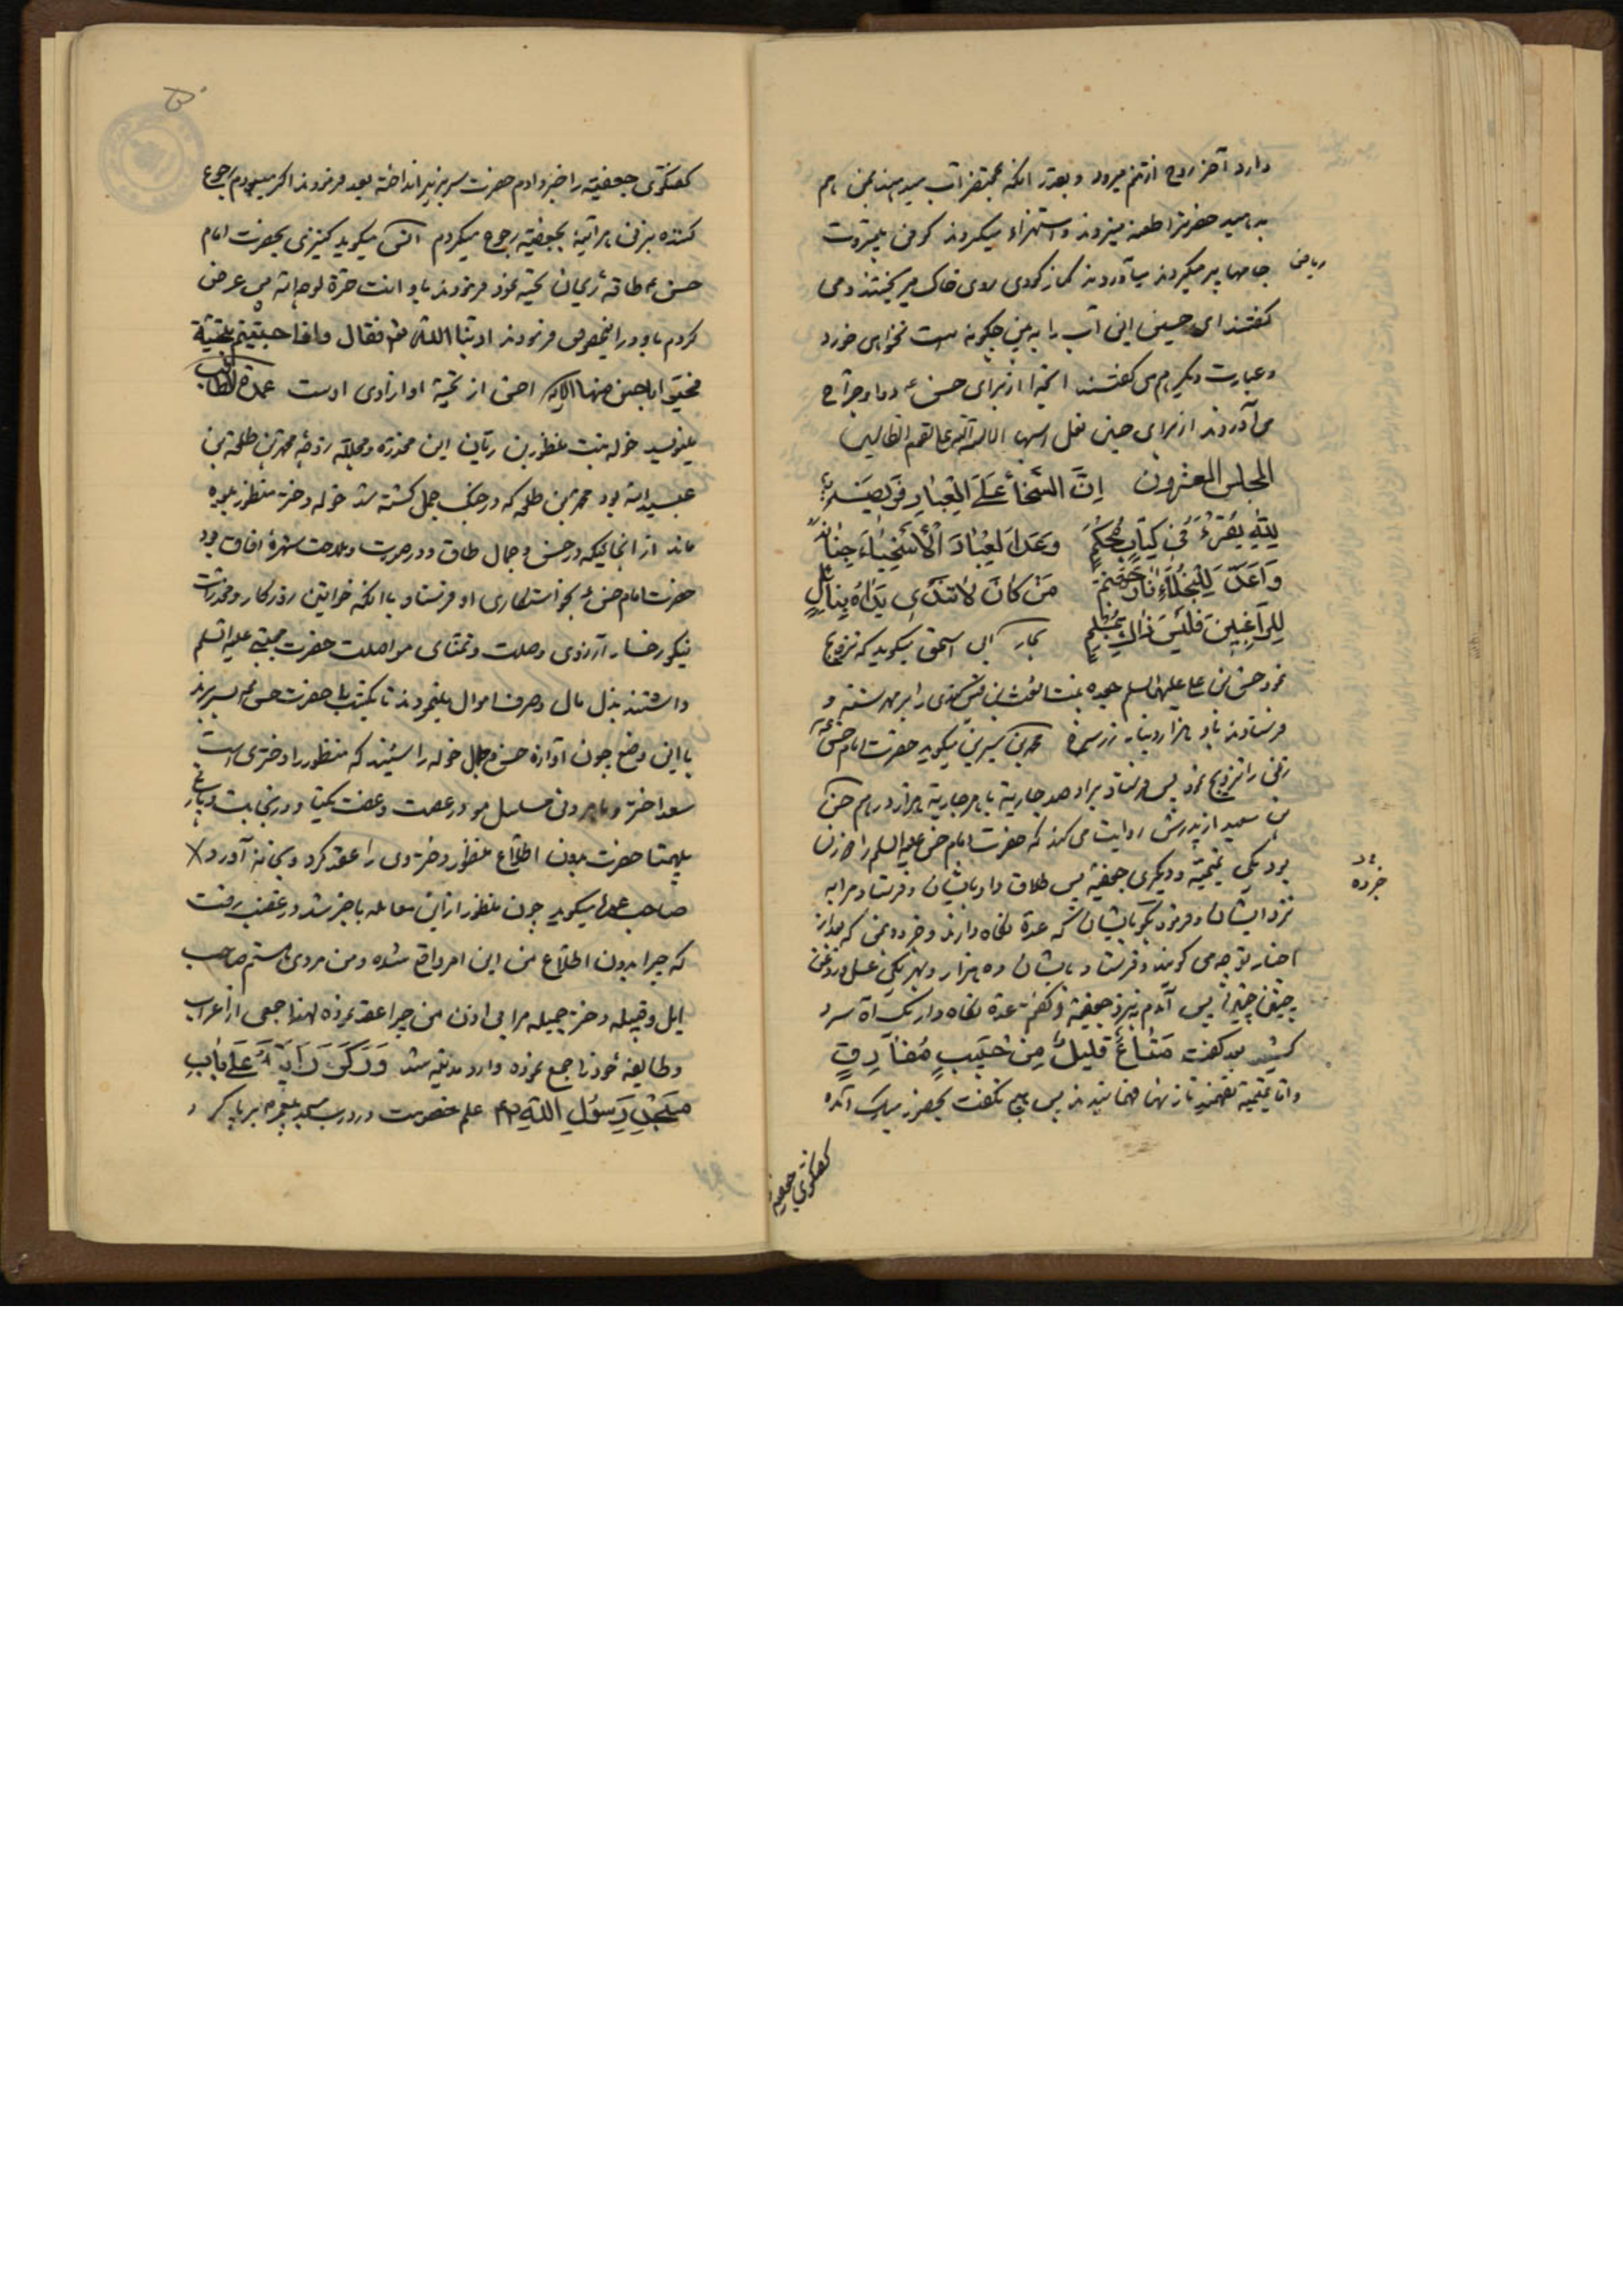 دارد آخر روح از تنم میرود و بعد از آنکه بمحتضر آب میدهند بمن هم
بدهید حضرت را طعنه میزدند و استهزاء میکردند کوفی بیمروت
جامها پر میکردند میآوردند کنار کودی روی خاک میریختند و می
گفتند ای حسین این آب را ببین چگونه است نخواهی خورد
و عبارت دیگر هم می گفتند اینجا از برای حسن ع دوا و جراح
می آوردند از برای حسین نعل اسبها الا لعنة الله علی القوم الظالمین
المجلس العشرون إِنَّ السَّخَاءَ عَلَی الْعِبَادِ فَرِیضَةٌ
لِلّٰهِ یُقْرَءُ فِی کِتَابٍ مُحْکَمٍ وَعَدَ الْعِبَادَ الْأَسْخِیَاءَ جِنَانَهُ
وَأَعَدَّ لِلْبُخَلَاءِ نَارَ جَهَنَّمَ مَنْ کَانَ لَا تَنْدَی یَدَاهُ بِنَائِلٍ
لِلرَّاغِبِینَ فَلَیْسَ ذَاکَ بِمُسْلِمٍ بحار ابی اسحق میگوید که تزویج
نمود حسن بن علی علیهما السلم جعده بنت اشعث بن قیس کندی را بر مهر سنته و
فرستادند باو هزار دینار زر سرخ محمد بن سیرین میگوید حضرت امام حسن ع
زنی را تزویج نمود پس فرستاد براو صد جاریة با هر جاریة هزار درهم حسن
بن سعید از پدرش روایت می کند که حضرت امام حسن علیه السلم را دو زن
بود یکی تمیمیة و دیگری جعفیة پس طلاق داد بایشان و فرستاد مرا به
نزد ایشان و فرمود بگو بایشان که عدة نگاه دارند و خبر ده بمن که بعد از
اخبار تو چه می گویند و فرستاد بایشان ده هزار و بهر یکی عسل و روغن
پس آمدم بنزد جعفیة و گفتم عدة نگاه دار یک آه سرد
کشید بعد گفت مَتَاعٌ قَلِیلٌ مِنْ حَبِیبٍ مُفَارِقٍ
و اما تمیمیة نفهمید تا زنها فهمانیدند پس هیچ نگفت بحضرت مبارک آمده
ریاض
خبر ده
گفتگوی جعفیه
گفتگوی جعفیة را خبر دادم حضرت سر بزیر انداخته بعد فرمودند اگر میبودم رجوع
کننده بزنی هر آینه بجعفیة رجوع میکردم انس میگوید کنیزی بحضرت امام
حسن ع طاقه ریحان تحیة نمود فرمودند باو انت حرة لوجه الله پس عرض
کردم باو در اینخصوص فرمودند ادبنا الله تع فقال و اذا حییتم بتحیة
فحیوا باحسن منها الایه احسن از تحیة او ازادی اوست عمدة المطالب
مینویسد خوله بنت منظور بن ریان این مخدرة مجلله زوجه محمد بن طلحة بن
عبیدالله بود محمد بن طلحه که در جنگ جمل کشته شد خوله دختر منظور بیوه
ماند از انجائیکه در حسن و جمال طاق و در صورت و ملاحت شهرهٔ افاق بود
حضرت امام حسن ع بخواستگاری او فرستاد با آنکه خواتین روزگار و مخدرات
نیکو رخسار آرزوی وصلت و تمنای مواصلت حضرت مجتبی علیه السلم
داشتند بذل مال و صرف اموال مینمودند تا یکشب با حضرت حسن ع بسر برند
با این وضع چون آوازه حسن و جمال خوله را شنیدند که منظور را دختری است
سعد اختر و ماهرو مسلسل مو در عصمت و عفت یکتا و در نجابت و
بیهمتا حضرت بدون اطلاع منظور دختر وی را عقد کرد و بخانه آورد
صاحب عمده میگوید چون منظور از این معامله باخبر شد در غضب رفت
که چرا بدون اطلاع من این امر واقع شده و من مردی هستم صاحب
ایل و قبیله دختر جمیله مرا بی اذن من چرا عقد نموده لهذا جمعی از اعراب
و طایفه خود را جمع نموده وارد مدینه شد وَرَکَزَ رَایَةً عَلَی بَابِ
مَسْجِدِ رَسُولِ اللّٰهِ ص علم خصومت در درب مسجد پیغمبر ص برپا کرد